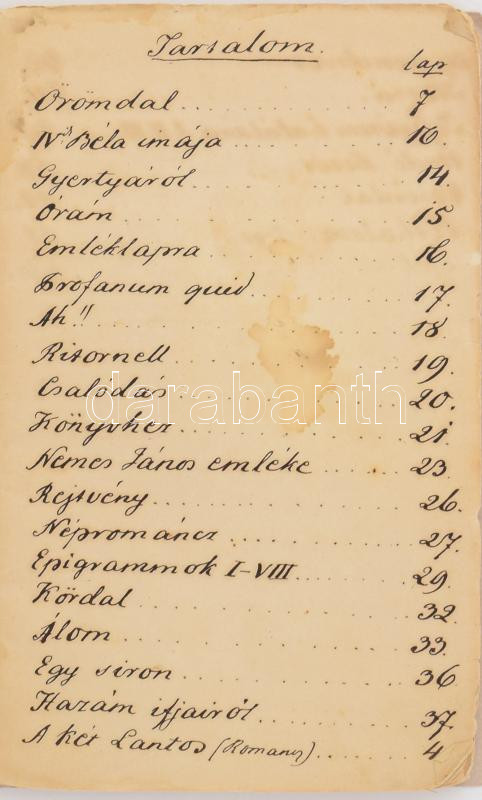 Tartalom.
lap
Örömdal .......... 7
IVd Béla imája .......... 10.
Gyertyáról .......... 14.
Órám .......... 15
Emléklapra .......... 16.
Profanum quid .......... 17.
Ah!! .......... 18.
Ritornell .......... 19.
Csalódás .......... 20.
Könyvhez .......... 21
Nemes János emléke .......... 23.
Rejtvény .......... 26.
Néprománcz .......... 27.
Epigrammok I–VIII .......... 29.
Kördal .......... 32.
Álom .......... 33.
Egy siron .......... 36
Hazám ifjairól .......... 37.
A két Lantos (Romancz) .......... 4
darabanth